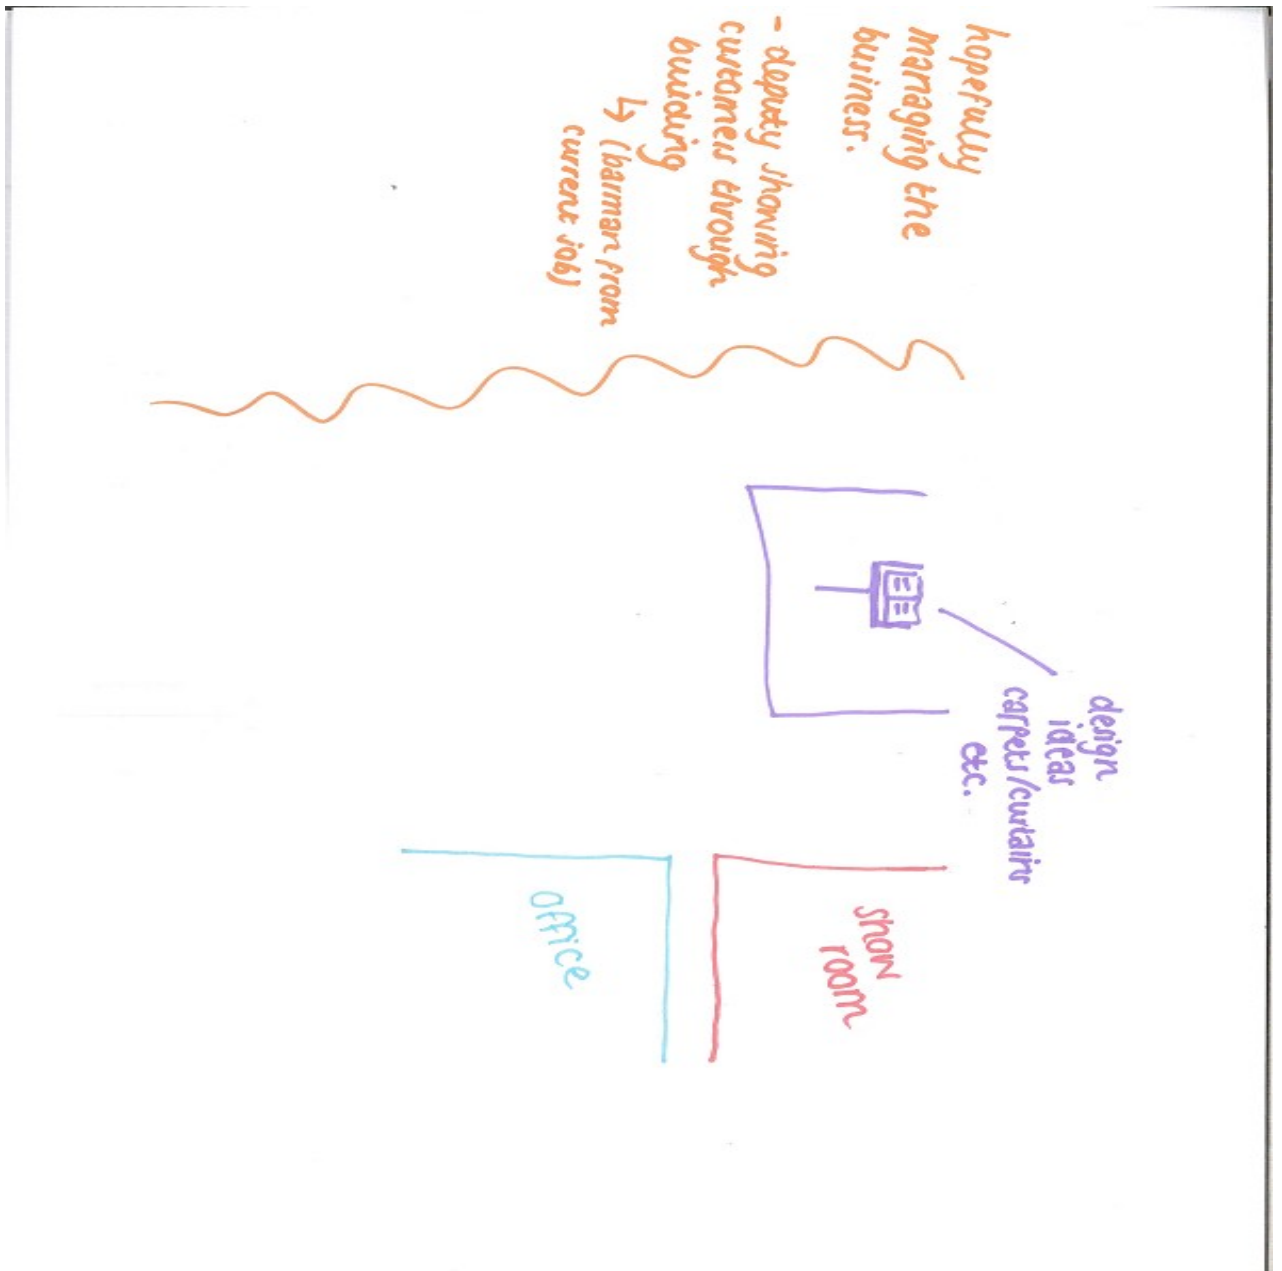 hopefully
managing the
business.
- deputy showing
customers through
building
↳ (barman from
current job)
design
ideas
carpets/curtains
etc.
show
room
office